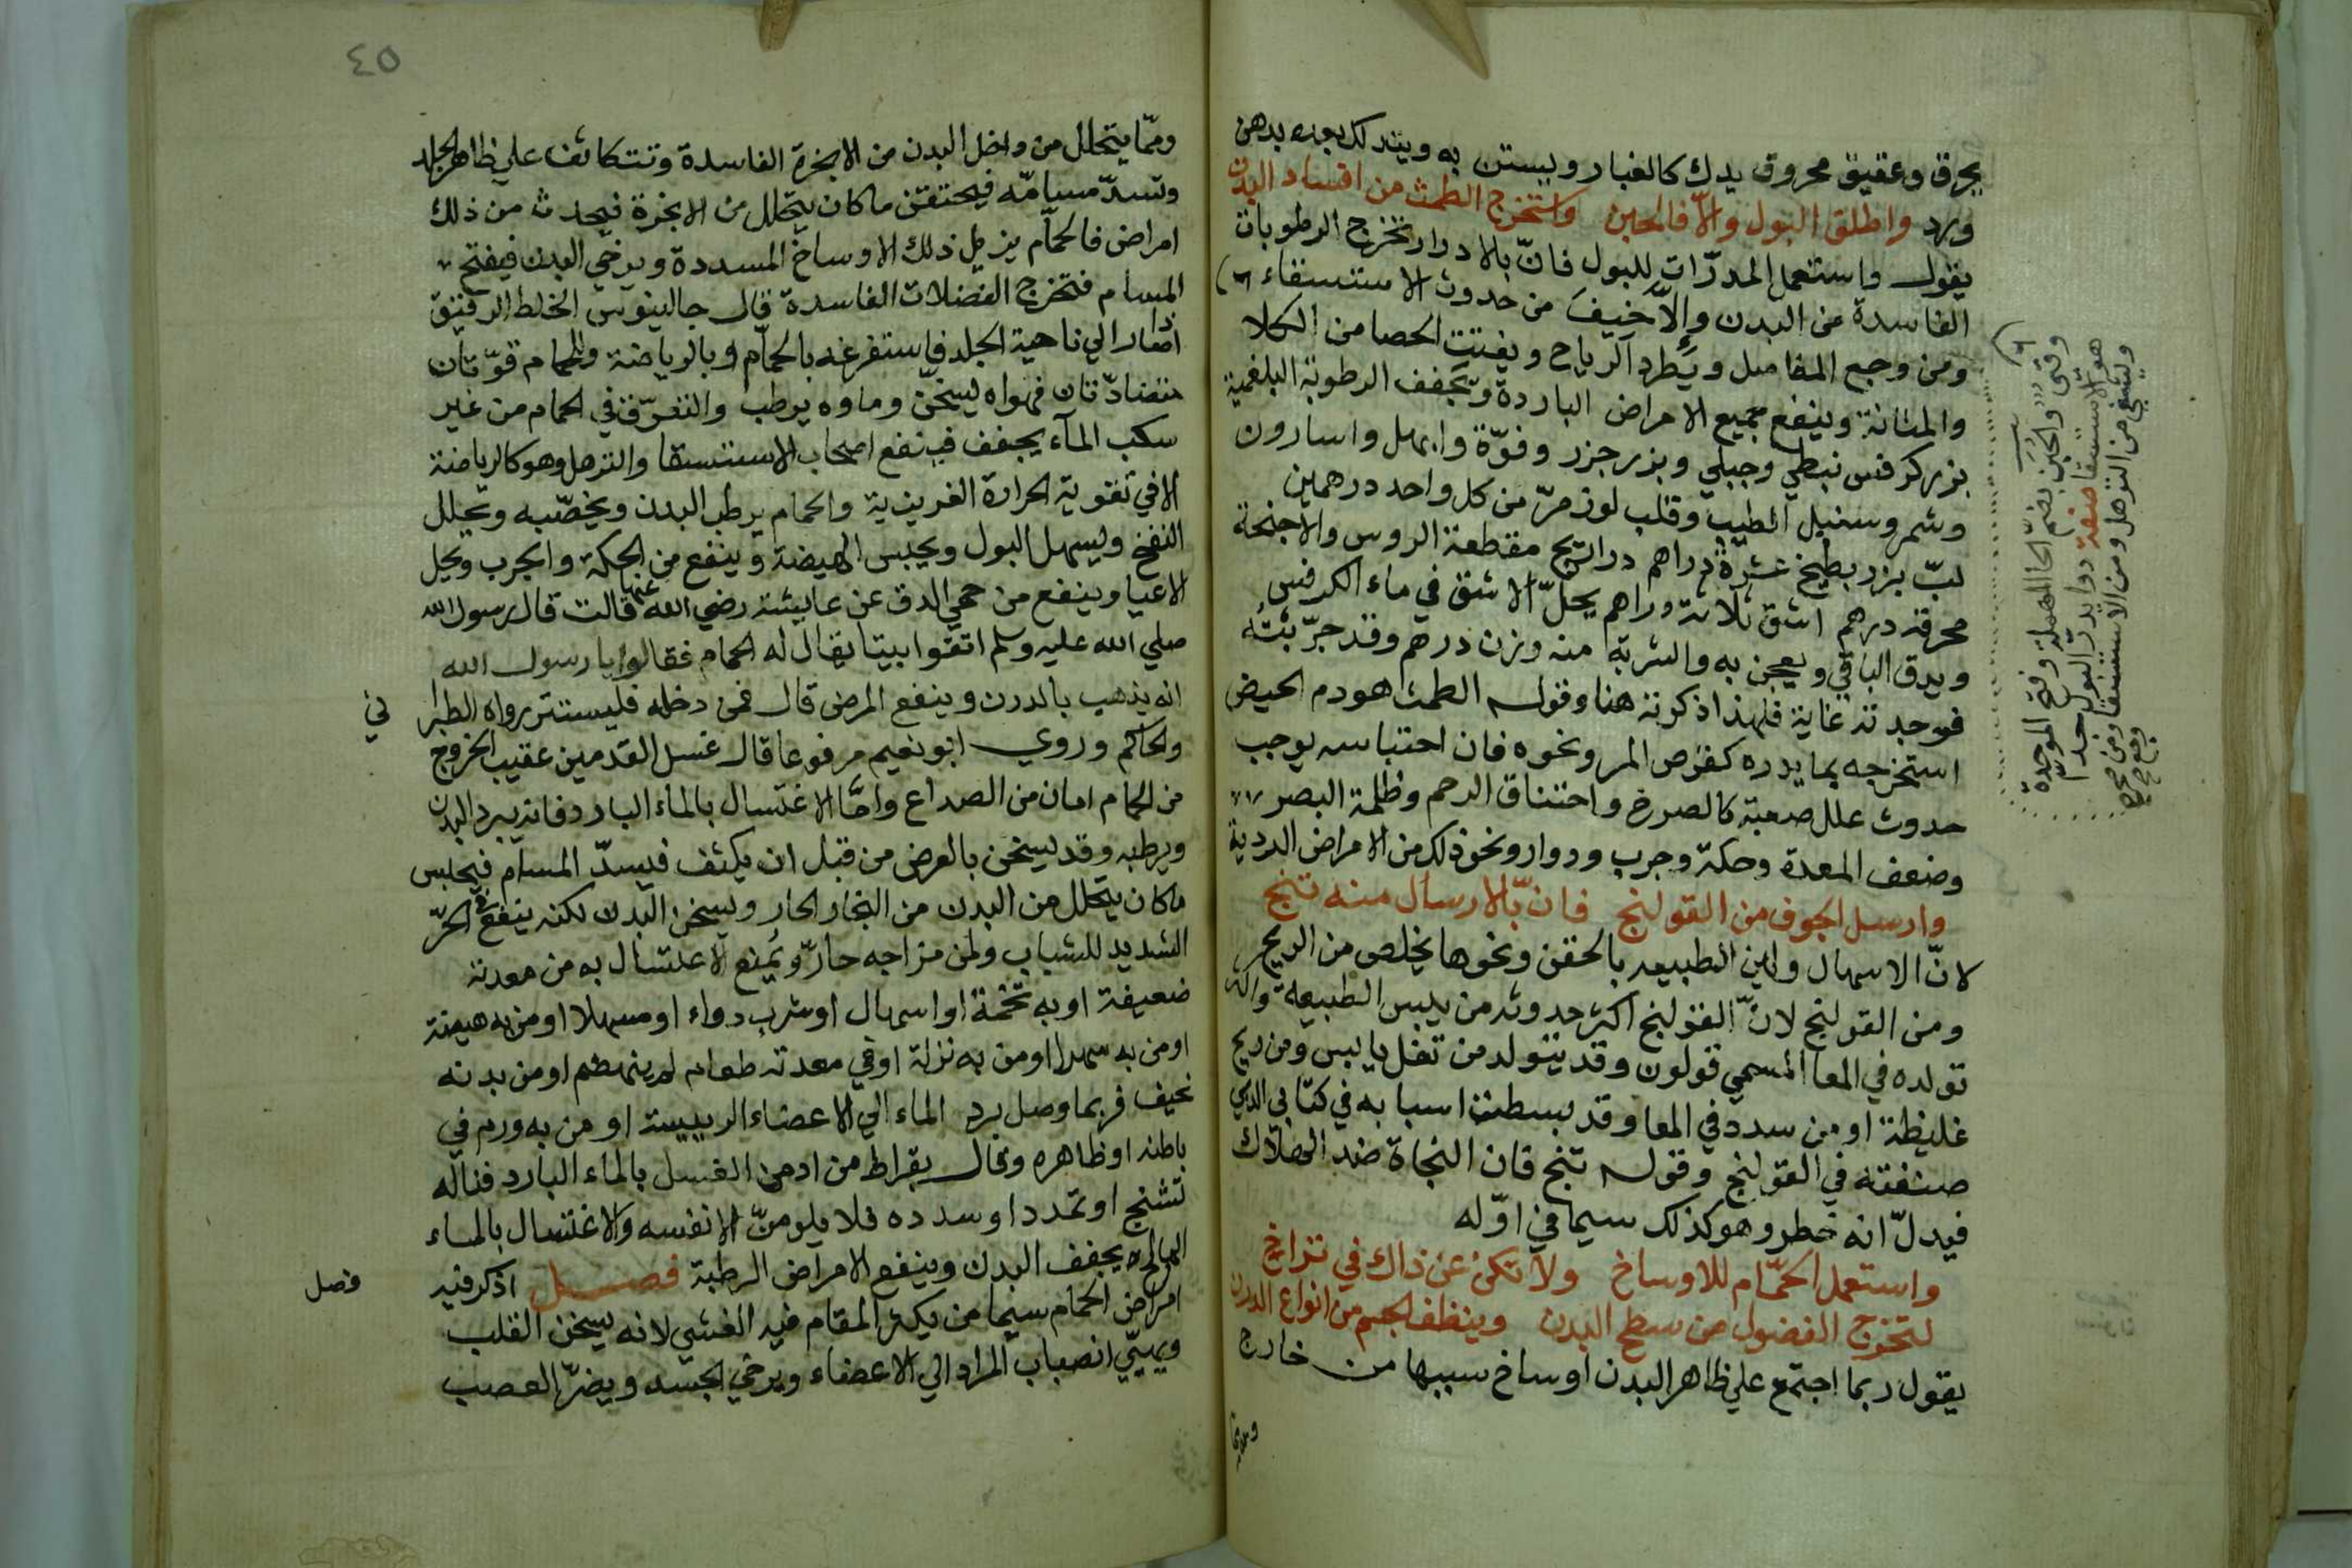 يحرق وعقيق محروق يدك كالغبار ويستن به ويتدلك بعده بدهن
ورد واطلق البول والا فالحبن واستخرج الطمث من افساد البدن
يقول واستعمل المدرات للبول فان بالادرار تخرج الرطوبات
الفاسدة من البدن والا خيف من حدوث الاستسقاء
ومن وجع المفاصل ويطرد الرياح ويفتت الحصا من الكلا
والمثانة وينفع جميع الامراض الباردة ويجفف الرطوبة البلغمية
بزر كرفس نبطي وجبلي وبزر جزر وفوّة وابهل واسارون
وشمر وسنبل الطيب وقلب لوز مرّ من كل واحد درهمين
لبّ بزر بطيخ عشرة دراهم دراريح مقطعة الروس والاجنحة
محرقة درهم اشق ثلاثة دراهم يحلّ الاشق في ماء الكرفس
ويدق الباقي ويعجن به والشربة منه وزن درهم وقد جرّبته
فوجدته غاية فلهذا ذكرته هنا وقوله الطمث هو دم الحيض
استخرجه بما يدره كقرص المر ونحوه فان احتباسه يوجب
حدوث علل صعبة كالصرع واختناق الرحم وظلمة البصر
وضعف المعدة وحكة وجرب ودوار ونحو ذلك من الامراض الردية
وارسل الجوف من القولنج فان بالارسال منه تنج
لانّ الاسهال ولين الطبيعه بالحقن ونحوها يخلص من الريح
ومن القولنج لانّ القولنج اكثر حدوثه من يبس الطبيعة واكثر
تولده في المعا المسمي قولون وقد يتولد من ثفل يابس ومن ريح
غليظة او من سدد في المعا وقد بسطت اسبابه في كتابي الذي
صنفته في القولنج وقوله تنج فان النجاة ضد الهلاك
فيدلّ انه خطر وهو كذلك سيما في اوّله
واستعمل الحمّام للاوساخ ولا تكن عن ذاك في تراخ
لتخرج الفضول من سطح البدن وينظف الجسم من انواع الدرن
يقول ربما اجتمع علي ظاهر البدن اوساخ سببها من خارج
ومما
والحبن بضم الحا المهملة وفتح الموحدة
هو الاستسقا صفة دوا يدر البول جدا
ويشفي من الترهل ومن الاستسقا
٤٥
وممّا يتحلل من داخل البدن من الابخرة الفاسدة وتتكاثف علي ظاهر الجلد
وتسدّ مسامّه فيحتقن ما كان يتحلل من الابخرة فيحدث من ذلك
امراض فالحمّام يزيل ذلك الاوساخ المسددة ويرخي البدن فيفتح
المسام فتخرج الفضلات الفاسدة قال جالينوس الخلط الرقيق
اذا صار الي ناحية الجلد فاستفرغه بالحمّام وبالرياضة وللحمام قوّتان
متضادّتان فهواه يسخّن وماوه يرطب والتعرّق في الحمام من غير
سكب المآء يجفف فينفع اصحاب الاستسقا والترهل وهو كالرياضة
الا في تقوية الحرارة الغريزية والحمام يرطب البدن ويخصّبه ويحلل
النفخ ويسهل البول ويحبس الهيضة وينفع من الحكة والجرب ويحل
الاعيا وينفع من حمي الدق عن عايشة رضي الله عنها قالت قال رسول الله
صلي الله عليه وسلم اتقوا بيتا يقال له الحمام فقالوا يا رسول الله
انه يذهب بالدرن وينفع المرضى قال فمن دخله فليستتر رواه الطبرا
ني
والحاكم وروي ابو نعيم مرفوعا قال غسل القدمين عقيب الخروج
من الحمام امان من الصداع وامّا الاغتسال بالماء البارد فانه يبرد البدن
ويرطبه وقد يسخن بالعرض من قبل ان يكثف فيسدّ المسام فيحبس
ما كان يتحلل من البدن من البخار الحار ويسخن البدن لكنه ينفع في الحرّ
الشديد للشباب ولمن مزاجه حارّ ويُمنع الاغتسال به من معدته
ضعيفة او به تخمة او اسهال او شرب دواء او مسهلا او من به هيضة
او من به سهرا او من به نزلة او في معدته طعام لم ينهضم او من بدنه
نحيف فربما وصل برد الماء الي الاعضاء الرييسة او من به ورم في
باطنه او ظاهره وقال بقراط من ادمن الغسل بالماء البارد فناله
تشنج او تمدد او سدده فلا يلومنّ الا نفسه والاغتسال بالماء
المالح يجفف البدن وينفع الامراض الرطبة فصل اذكر فيه
فصل
امراض الحمام سيما من يكثر المقام فيه الغشي لانه يسخن القلب
ويهيّي انصباب المراد الي الاعضاء ويرخي الجسد ويضرّ العصب